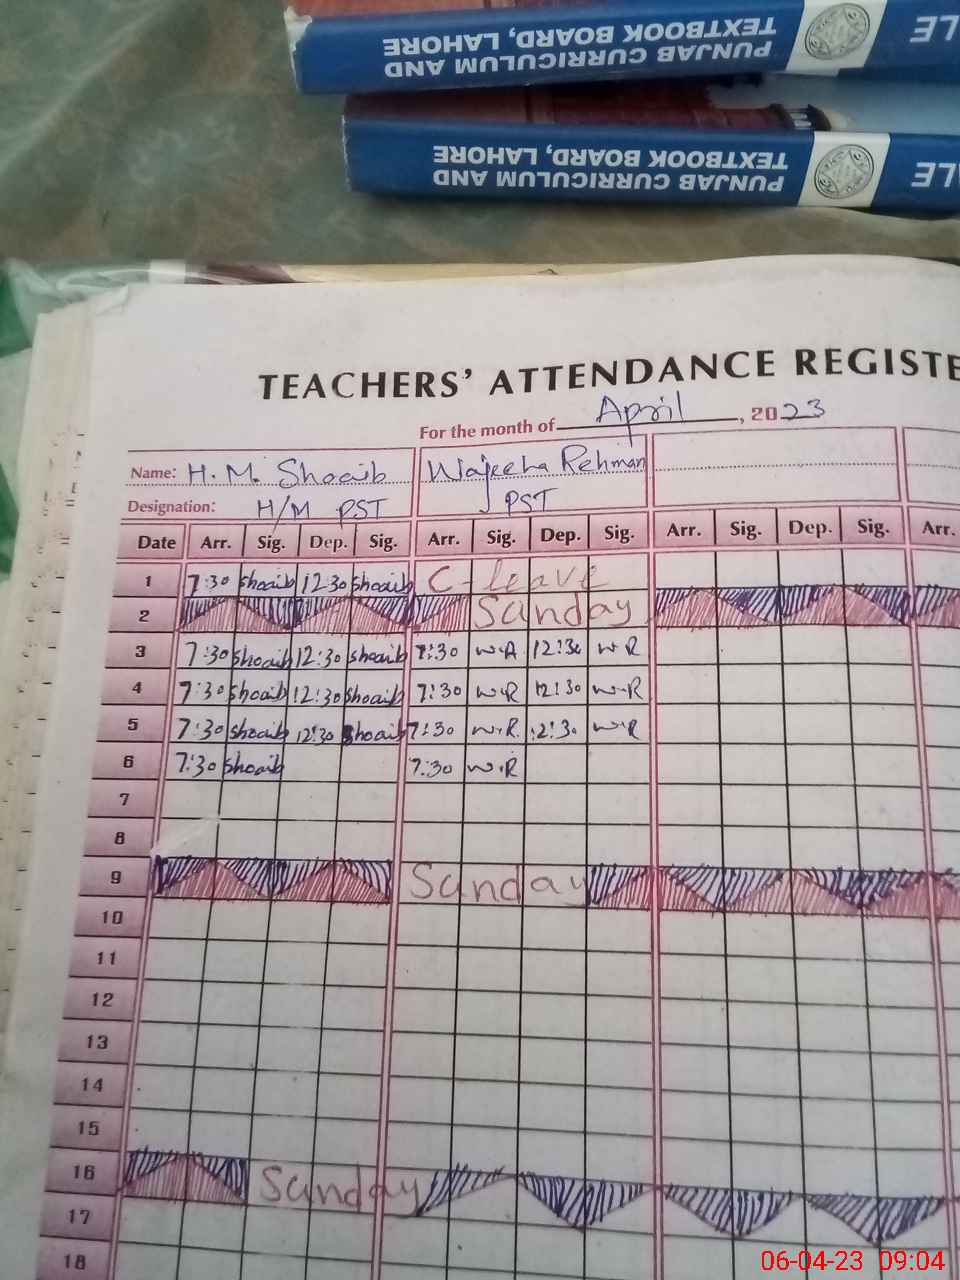 PUNJAB CURRICULUM AND
TEXTBOOK BOARD, LAHORE
PUNJAB CURRICULUM AND
TEXTBOOK BOARD, LAHORE
TEACHERS' ATTENDANCE REGISTE
For the month of April, 2023
Name: H.M. Shoaib Wajeeha Rehman
Designation: H/M PST PST
Date Arr. Sig. Dep. Sig. Arr. Sig. Dep. Sig. Arr. Sig. Dep. Sig. Arr.
1 7:30 Shoaib 12:30 Shoaib C-leave
2 Sunday
3 7:30 Shoaib 12:30 Shoaib 7:30 W.R 12:30 W.R
4 7:30 Shoaib 12:30 Shoaib 7:30 W.R 12:30 W.R
5 7:30 Shoaib 12:30 Shoaib 7:30 W.R 12:30 W.R
6 7:30 Shoaib 7:30 W.R
7
8
9 Sunday
10
11
12
13
14
15
16 Sunday
17
18
06-04-23 09:04